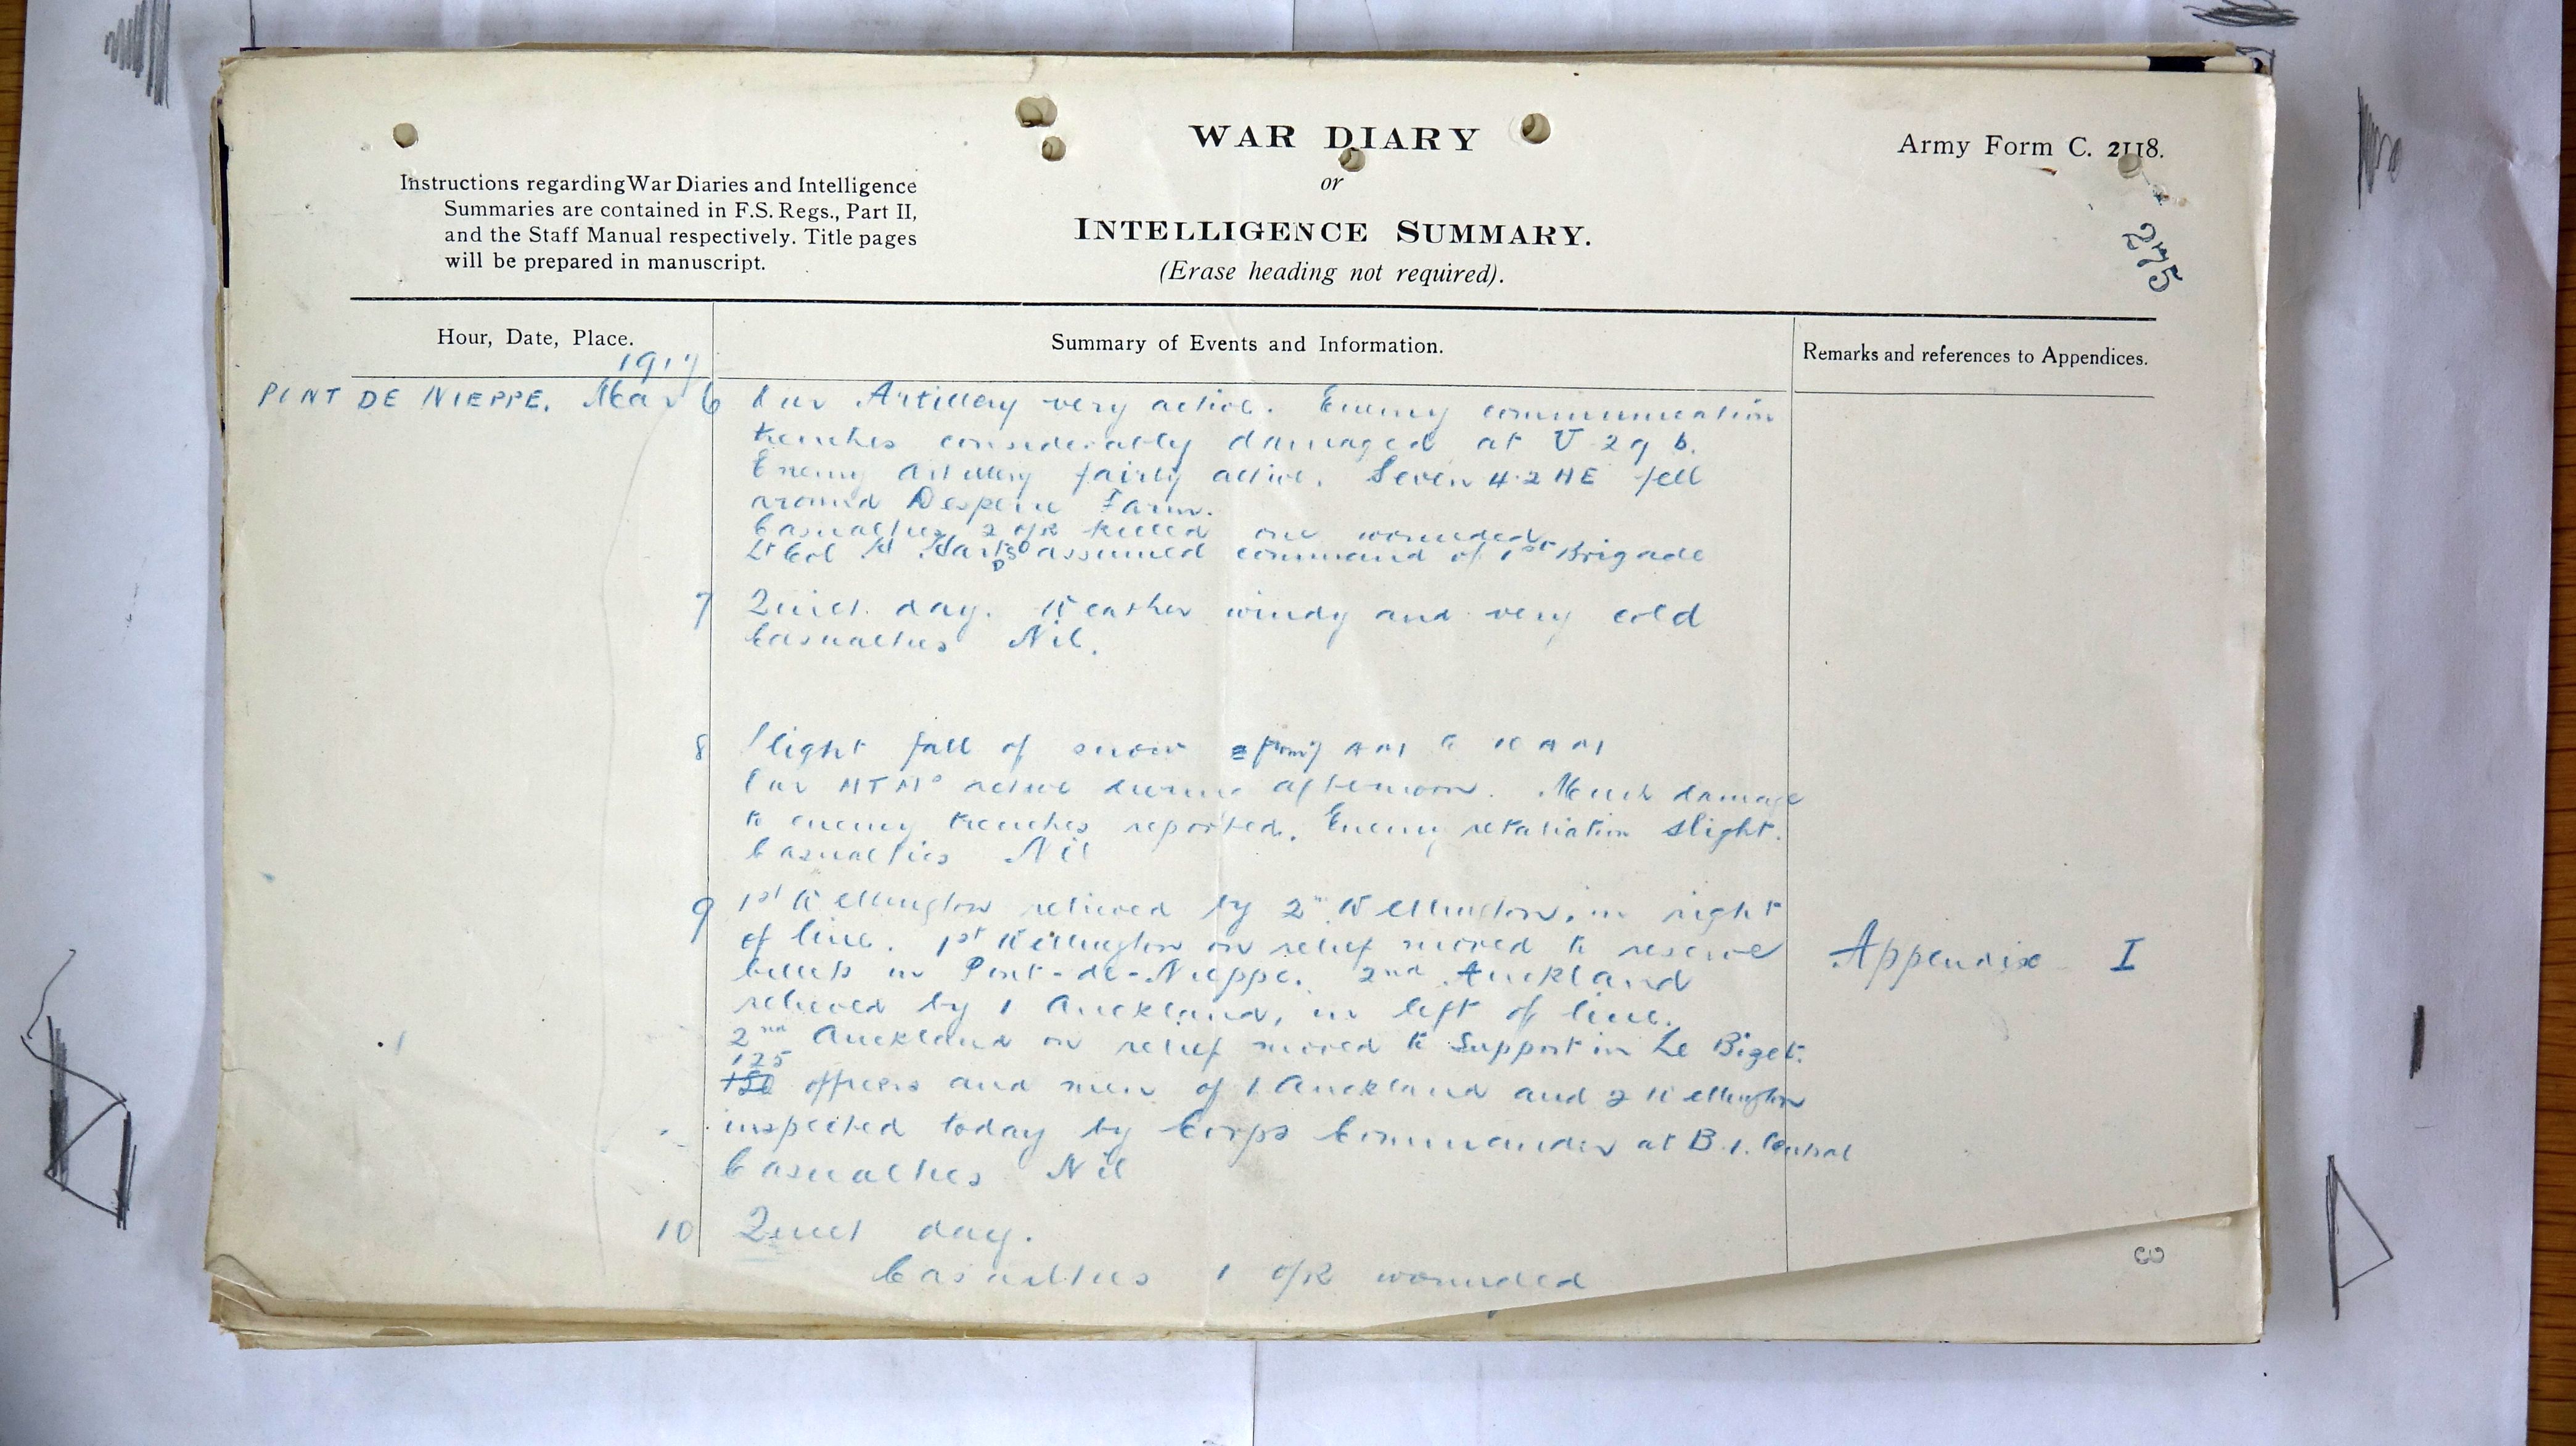 WAR DIARY
or
INTELLIGENCE SUMMARY.
(Erase heading not required).
Army Form C. 2118.
Instructions regarding War Diaries and Intelligence
Summaries are contained in F.S. Regs., Part II,
and the Staff Manual respectively. Title pages
will be prepared in manuscript.
275
Hour, Date, Place.
Summary of Events and Information.
Remarks and references to Appendices.
1917
PONT DE NIEPPE. Mar 6 Our Artillery very active. Enemy communication
trenches considerably damaged at U 29 b.
Enemy artillery fairly active. Seven 4.2 HE fell
around Despierre Farm.
Casualties 2 O/R killed one wounded
Lt Col H Hart DSO assumed command of 1st Brigade
7 Quiet day. Weather windy and very cold
Casualties Nil.
8 Slight fall of snow from 7 AM to 10 AM
Our MTMs active during afternoon. Much damage
to enemy trenches reported. Enemy retaliation slight.
Casualties Nil
9 1st Wellington relieved by 2nd Wellington, in right
of line. 1st Wellington on relief moved to reserve
billets in Pont-de-Nieppe. 2nd Auckland
relieved by 1 Auckland, in left of line.
2nd Auckland on relief moved to Support in Le Bizet.
125
150 officers and men of 1 Auckland and 2 Wellington
inspected today by Corps Commander at B.1. Central
Casualties Nil
Appendix I
10 Quiet day.
Casualties 1 O/R wounded
3